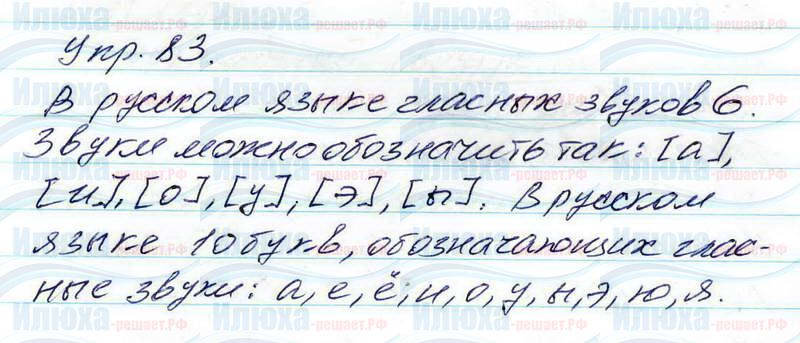 Упр. 83.
В русском языке гласных звуков 6.
Звуки можно обозначить так: [а],
[и], [о], [у], [э], [ы]. В русском
языке 10 букв, обозначающих глас-
ные звуки: а, е, ё, и, о, у, ы, э, ю, я.
Илюха-решает.РФ